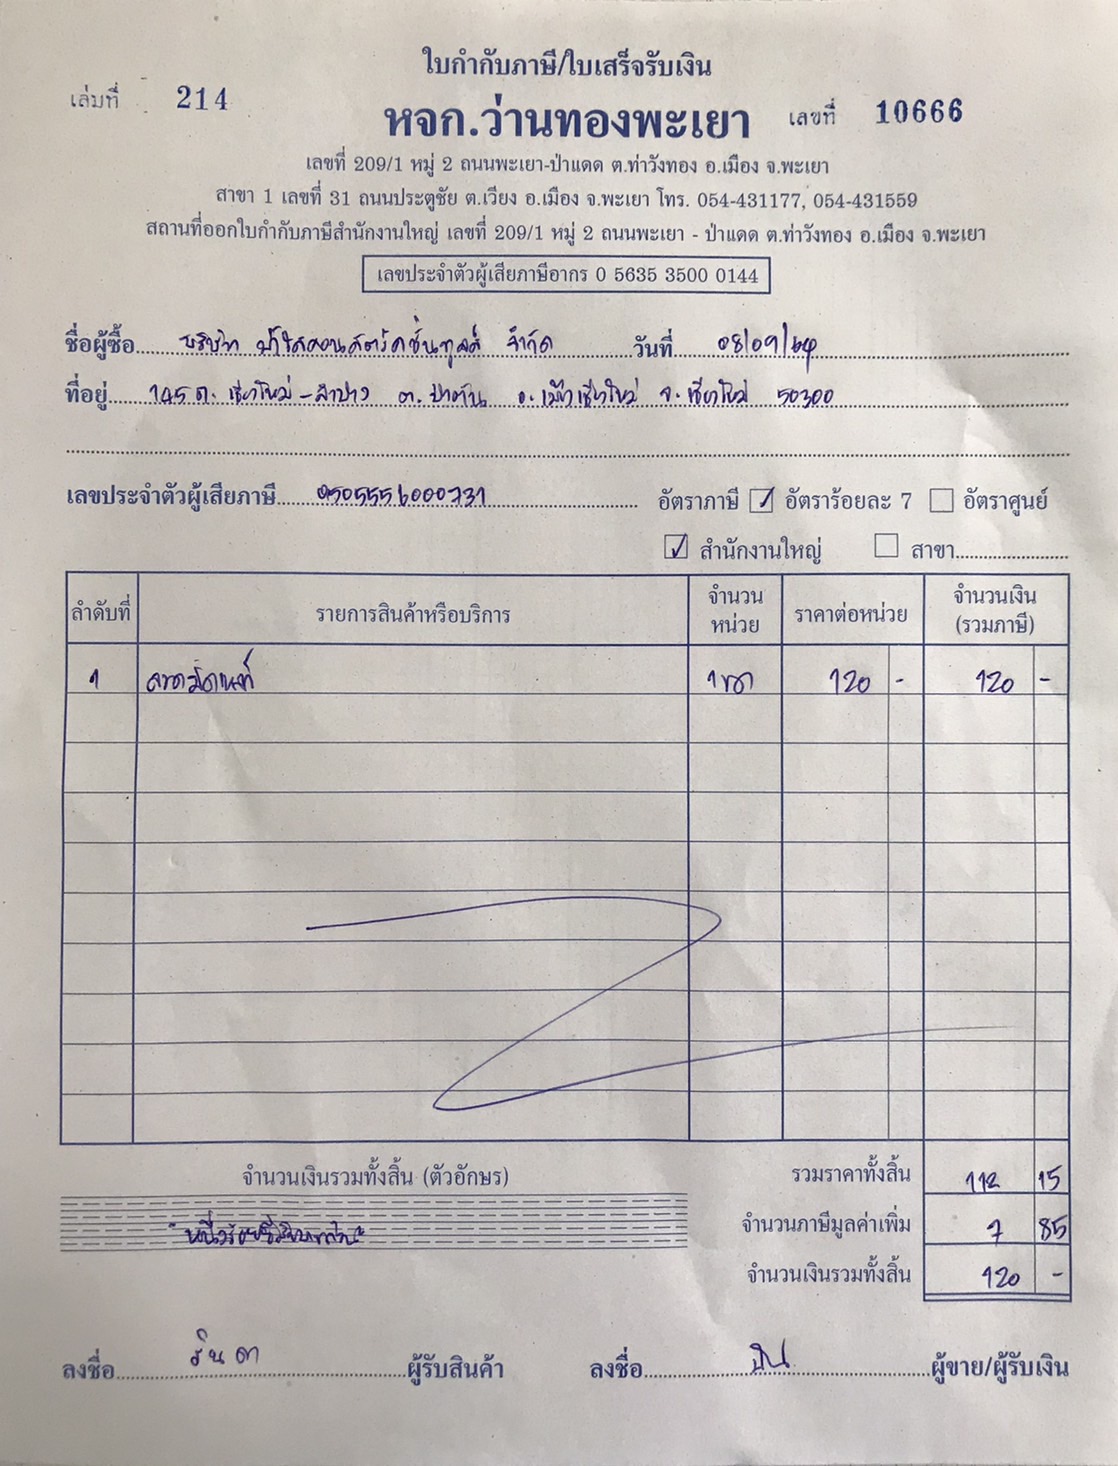 ใบกำกับภาษี/ใบเสร็จรับเงิน
เล่มที่ 214
หจก.ว่านทองพะเยา เลขที่ 10666
เลขที่ 209/1 หมู่ 2 ถนนพะเยา-ป่าแดด ต.ท่าวังทอง อ.เมือง จ.พะเยา
สาขา 1 เลขที่ 31 ถนนประตูชัย ต.เวียง อ.เมือง จ.พะเยา โทร. 054-431177, 054-431559
สถานที่ออกใบกำกับภาษีสำนักงานใหญ่ เลขที่ 209/1 หมู่ 2 ถนนพะเยา - ป่าแดด ต.ท่าวังทอง อ.เมือง จ.พะเยา
เลขประจำตัวผู้เสียภาษีอากร 0 5635 3500 0144
ชื่อผู้ซื้อ บริษัท จำกัด วันที่ 08/09/64
ที่อยู่ 145 ถ. เชียงใหม่-ลำปาง ต. ป่าตัน อ. เมืองเชียงใหม่ จ. เชียงใหม่ 50300
เลขประจำตัวผู้เสียภาษี 0505556000731 อัตราภาษี ✓ อัตราร้อยละ 7 อัตราศูนย์
✓ สำนักงานใหญ่ สาขา
ลำดับที่ รายการสินค้าหรือบริการ จำนวนหน่วย ราคาต่อหน่วย จำนวนเงิน (รวมภาษี)
1 120 - 120 -
จำนวนเงินรวมทั้งสิ้น (ตัวอักษร) รวมราคาทั้งสิ้น 112 15
หนึ่งร้อยยี่สิบบาทถ้วน จำนวนภาษีมูลค่าเพิ่ม 7 85
จำนวนเงินรวมทั้งสิ้น 120 -
ลงชื่อ ผู้รับสินค้า ลงชื่อ ผู้ขาย/ผู้รับเงิน